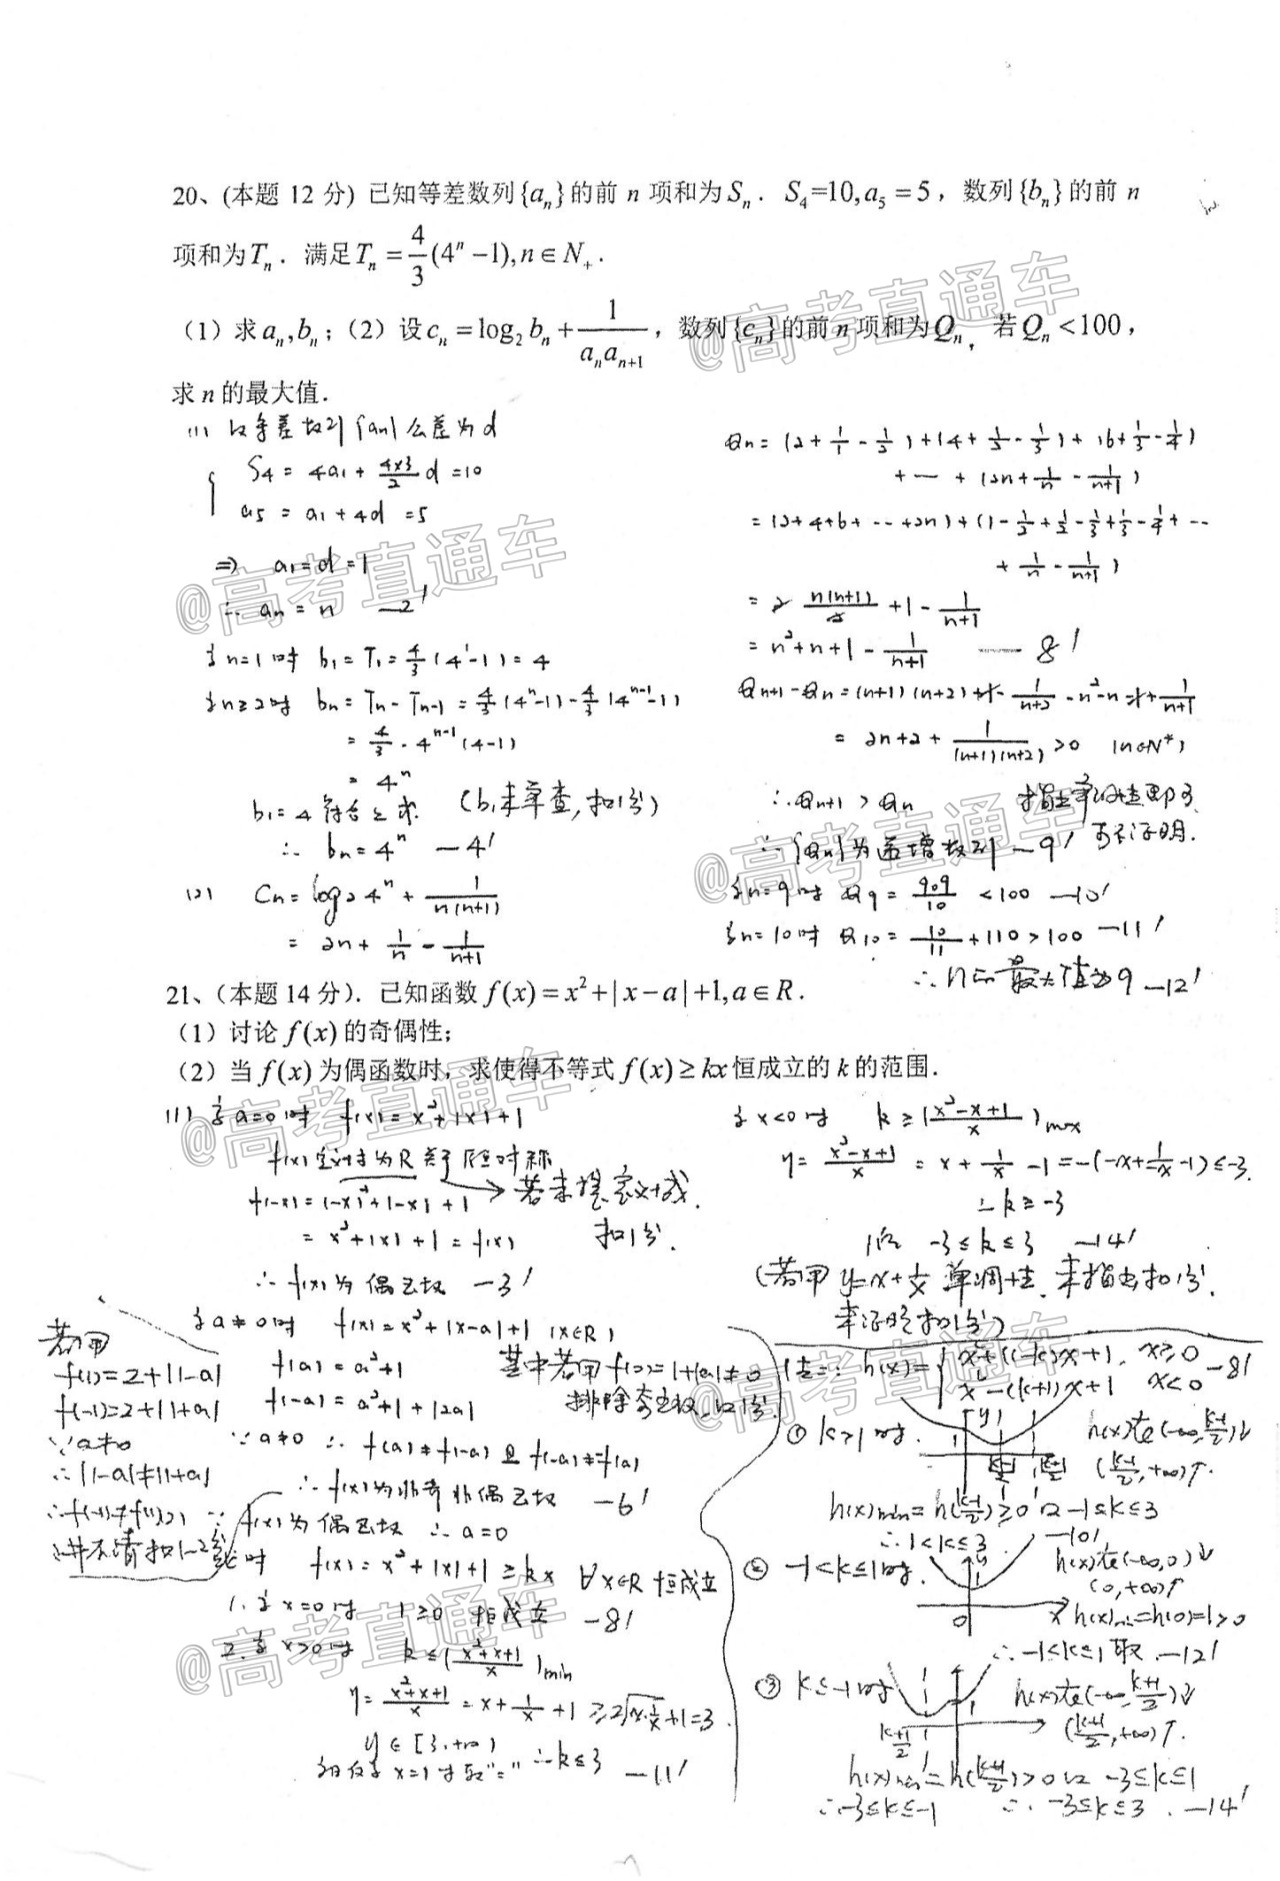 20、(本题 12 分) 已知等差数列{aₙ}的前 n 项和为Sₙ. S₄=10,a₅=5，数列{bₙ}的前 n
项和为Tₙ. 满足Tₙ=4/3(4ⁿ−1),n∈N₊.
（1）求aₙ,bₙ;（2）设cₙ=log₂bₙ+1/(aₙaₙ₊₁)，数列{cₙ}的前n项和为Qₙ, 若Qₙ<100，
求 n 的最大值.
(1) 设等差数列{an}公差为d
S4=4a1+(4×3)/2 d=10
a5=a1+4d=5
⇒ a1=d=1
∴ an=n —2'
当n=1时 b1=T1=4/3(4¹-1)=4
当n≥2时 bn=Tn-Tn-1=4/3(4ⁿ-1)-4/3(4ⁿ⁻¹-1)
=4/3·4ⁿ⁻¹(4-1)
=4ⁿ
b1=4符合上求 (b1未单查,扣1分)
∴ bn=4ⁿ —4'
(2) Cn=log₂4ⁿ+1/(n(n+1))
=2n+1/n-1/(n+1)
Qn=(2+1/1-1/2)+(4+1/2-1/3)+(6+1/3-1/4)
+—+(2n+1/n-1/(n+1))
=(2+4+6+…+2n)+(1-1/2+1/2-1/3+1/3-1/4+…
+1/n-1/(n+1))
=2 n(n+1)/2+1-1/(n+1)
=n²+n+1-1/(n+1) —8'
Qn+1-Qn=(n+1)(n+2)+1-1/(n+2)-n²-n-1+1/(n+1)
=2n+2+1/((n+1)(n+2))>0 (n∈N*)
∴Qn+1>Qn 指出单调性即可
∴{Qn}为递增数列 —9' 可不证明.
当n=9时 Q9=909/10<100 —10'
当n=10时 Q10=10/11+110>100 —11'
∴n的最大值为9 —12'
21、(本题 14 分). 已知函数 f(x)=x²+|x−a|+1,a∈R.
（1）讨论 f(x) 的奇偶性;
（2）当 f(x) 为偶函数时，求使得不等式 f(x)≥kx 恒成立的 k 的范围.
(1) 当a=0时 f(x)=x²+|x|+1
f(x)定义域为R关于原点对称
f(-x)=(-x)²+|-x|+1 → 若未提定义域
=x²+|x|+1=f(x) 扣1分.
∴f(x)为偶函数 —3'
当a≠0时 f(x)=x²+|x-a|+1 (x∈R)
f(a)=a²+1 其中若用f(0)=1+|a|≠0
f(-a)=a²+1+|2a| 排除奇函数,给1分.
∵a≠0 ∴f(a)≠f(-a)且f(-a)≠-f(a)
∴f(x)为非奇非偶函数 —6'
若用
f(1)=2+|1-a|
f(-1)=2+|1+a|
∵a≠0
∴|1-a|≠|1+a|
∴f(-1)≠f(1)
∵f(x)为偶函数 ∴a=0
时 f(x)=x²+|x|+1≥kx ∀x∈R恒成立
1.当x=0时 1≥0 恒成立 —8'
2.当x>0时 k≤((x²+x+1)/x)min
y=(x²+x+1)/x=x+1/x+1≥2√(x·1/x)+1=3.
y∈[3,+∞)
当且仅当x=1时取"=" ∴k≤3 —11'
当x<0时 k≥((x²-x+1)/x)max
y=(x²-x+1)/x=x+1/x-1=-(-x+1/-x)-1≤-3.
∴k≥-3
∴-3≤k≤3 —14'
(若用y=x+1/x单调性,未指出扣1分,
未证明扣1分)
法二: h(x)={x²+(1-k)x+1, x≥0
x²-(k+1)x+1 x<0 —8'
① k>1时. h(x)在(-∞,(k-1)/2)↓
((k-1)/2,+∞)↑.
h(x)min=h((k-1)/2)≥0 ⇒ -1≤k≤3
∴1<k≤3 —10'
② -1<k≤1时. h(x)在(-∞,0)↓
(0,+∞)↑
h(x)min=h(0)=1>0
∴-1<k≤1取 —12'
③ k≤-1时 h(x)在(-∞,(k+1)/2)↓
((k+1)/2,+∞)↑.
h(x)min=h((k+1)/2)≥0 ⇒ -3≤k≤1
∴-3≤k≤-1 ∴-3≤k≤3. —14'
@高考直通车
@高考直通车
@高考直通车
@高考直通车
@高考直通车
@高考直通车